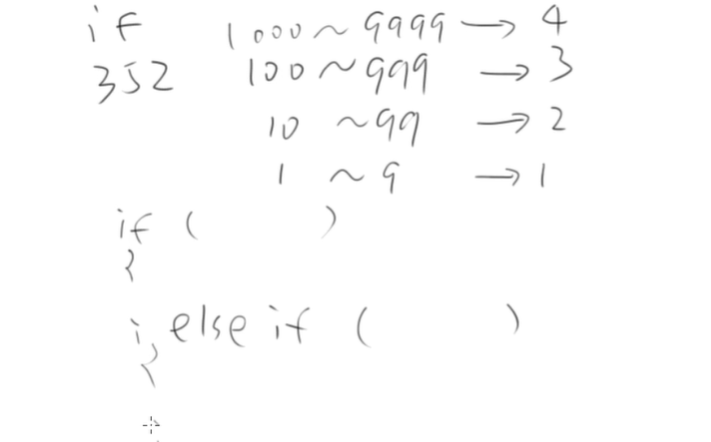 if 1000 ~ 9999 → 4
352 100 ~ 999 → 3
10 ~ 99 → 2
1 ~ 9 → 1
if ( )
{
else if ( )
{